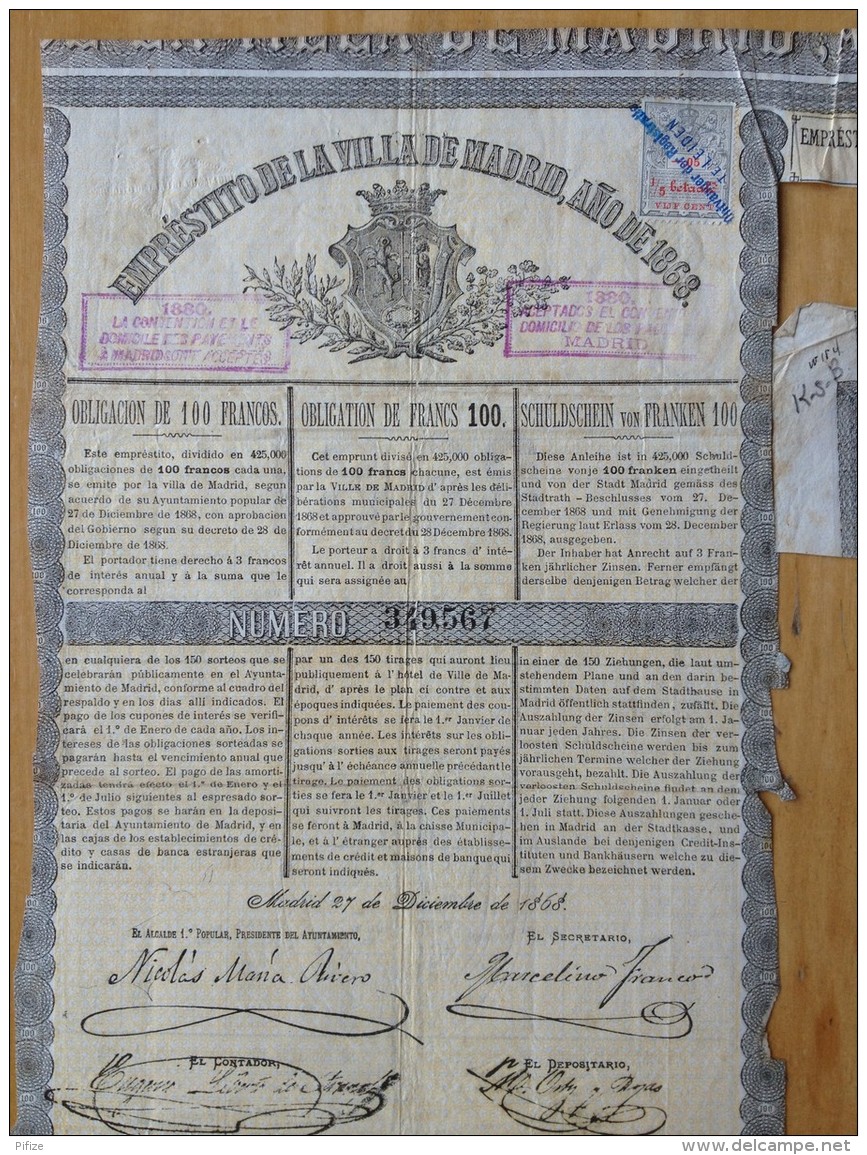 DE MADRID, A
EMPRÉST
EMPRÉSTITO DE LA VILLA DE MADRID, AÑO DE 1868.
Ontvanger der Registratie
TE LEIDEN
05
VIJF CENT
1880.
LA CONVENTION ET LE
DOMICILE DES PAYEMENTS
À MADRID SONT ACCEPTÉS
1880.
ACEPTADOS EL CONVENIO
DOMICILIO DE LOS PAGOS
MADRID
K-S-B
OBLIGACION DE 100 FRANCOS.
Este empréstito, dividido en 425,000
obligaciones de 100 francos cada una,
se emite por la villa de Madrid, segun
acuerdo de su Ayuntamiento popular de
27 de Diciembre de 1868, con aprobacion
del Gobierno segun su decreto de 28 de
Diciembre de 1868.
El portador tiene derecho á 3 francos
de interés anual y á la suma que le
corresponda al
OBLIGATION DE FRANCS 100.
Cet emprunt divisé en 425,000 obliga-
tions de 100 francs chacune, est émis
par la VILLE DE MADRID d' après les déli-
bérations municipales du 27 Décembre
1868 et approuvé par le gouvernement con-
formément au decret du 28 Décembre 1868.
Le porteur a droit à 3 francs d' inté-
rêt annuel. Il a droit aussi à la somme
qui sera assignée au
SCHULDSCHEIN VON FRANKEN 100
Diese Anleihe ist in 425,000 Schuld-
scheine von je 100 franken eingetheilt
und von der Stadt Madrid gemäss des
Stadtrath-Beschlusses vom 27. De-
cember 1868 und mit Genehmigung der
Regierung laut Erlass vom 28. December
1868, ausgegeben.
Der Inhaber hat Anrecht auf 3 Fran-
ken jährlicher Zinsen. Ferner empfängt
derselbe denjenigen Betrag welcher der
NUMERO 349567
en cualquiera de los 150 sorteos que se
celebrarán públicamente en el Ayunta-
miento de Madrid, conforme al cuadro del
respaldo y en los dias allí indicados. El
pago de los cupones de interés se verifi-
cará el 1.º de Enero de cada año. Los in-
tereses de las obligaciones sorteadas se
pagarán hasta el vencimiento anual que
precede al sorteo. El pago de las amorti-
zadas tendrá efecto el 1.º de Enero y el
1.º de Julio siguientes al espresado sor-
teo. Estos pagos se harán en la deposi-
taria del Ayuntamiento de Madrid, y en
las cajas de los establecimientos de cré-
dito y casas de banca estranjeras que
se indicarán.
par un des 150 tirages qui auront lieu
publiquement à l' hôtel de Ville de Ma-
drid, d' après le plan ci contre et aux
époques indiquées. Le paiement des cou-
pons d' intérêts se fera le 1.er Janvier de
chaque année. Les intérêts sur les obli-
gations sorties aux tirages seront payés
jusqu' à l' échéance annuelle précédant le
tirage. Le paiement des obligations sor-
ties se fera le 1.er Janvier et le 1.er Juillet
qui suivront les tirages. Ces paiements
se feront à Madrid, à la caisse Municipa-
le, et à l' étranger auprés des établisse-
ments de crédit et maisons de banque qui
seront indiqués.
in einer de 150 Ziehungen, die laut um-
stehendem Plane und an den darin be-
stimmten Daten auf dem Stadthause in
Madrid öffentlich stattfinden, zufällt. Die
Auszahlung der Zinsen erfolgt am 1. Ja-
nuar jeden Jahres. Die Zinsen der ver-
loosten Schuldscheine werden bis zum
jährlichen Termine welcher der Ziehung
vorausgeht, bezahlt. Die Auszahlung der
verloosten Schuldscheine findet an dem
jeder Ziehung folgenden 1. Januar oder
1. Juli statt. Diese Auszahlungen gesche-
hen in Madrid an der Stadtkasse, und
im Auslande bei denjenigen Credit-Ins-
tituten und Bankhäusern welche zu die-
sem Zwecke bezeichnet werden.
Madrid 27 de Diciembre de 1868.
EL ALCALDE 1.º POPULAR, PRESIDENTE DEL AYUNTAMIENTO,
Nicolás María Rivero
EL SECRETARIO,
Marcelino Franco
EL CONTADOR,
EL DEPOSITARIO,
Pifize
www.delcampe.net